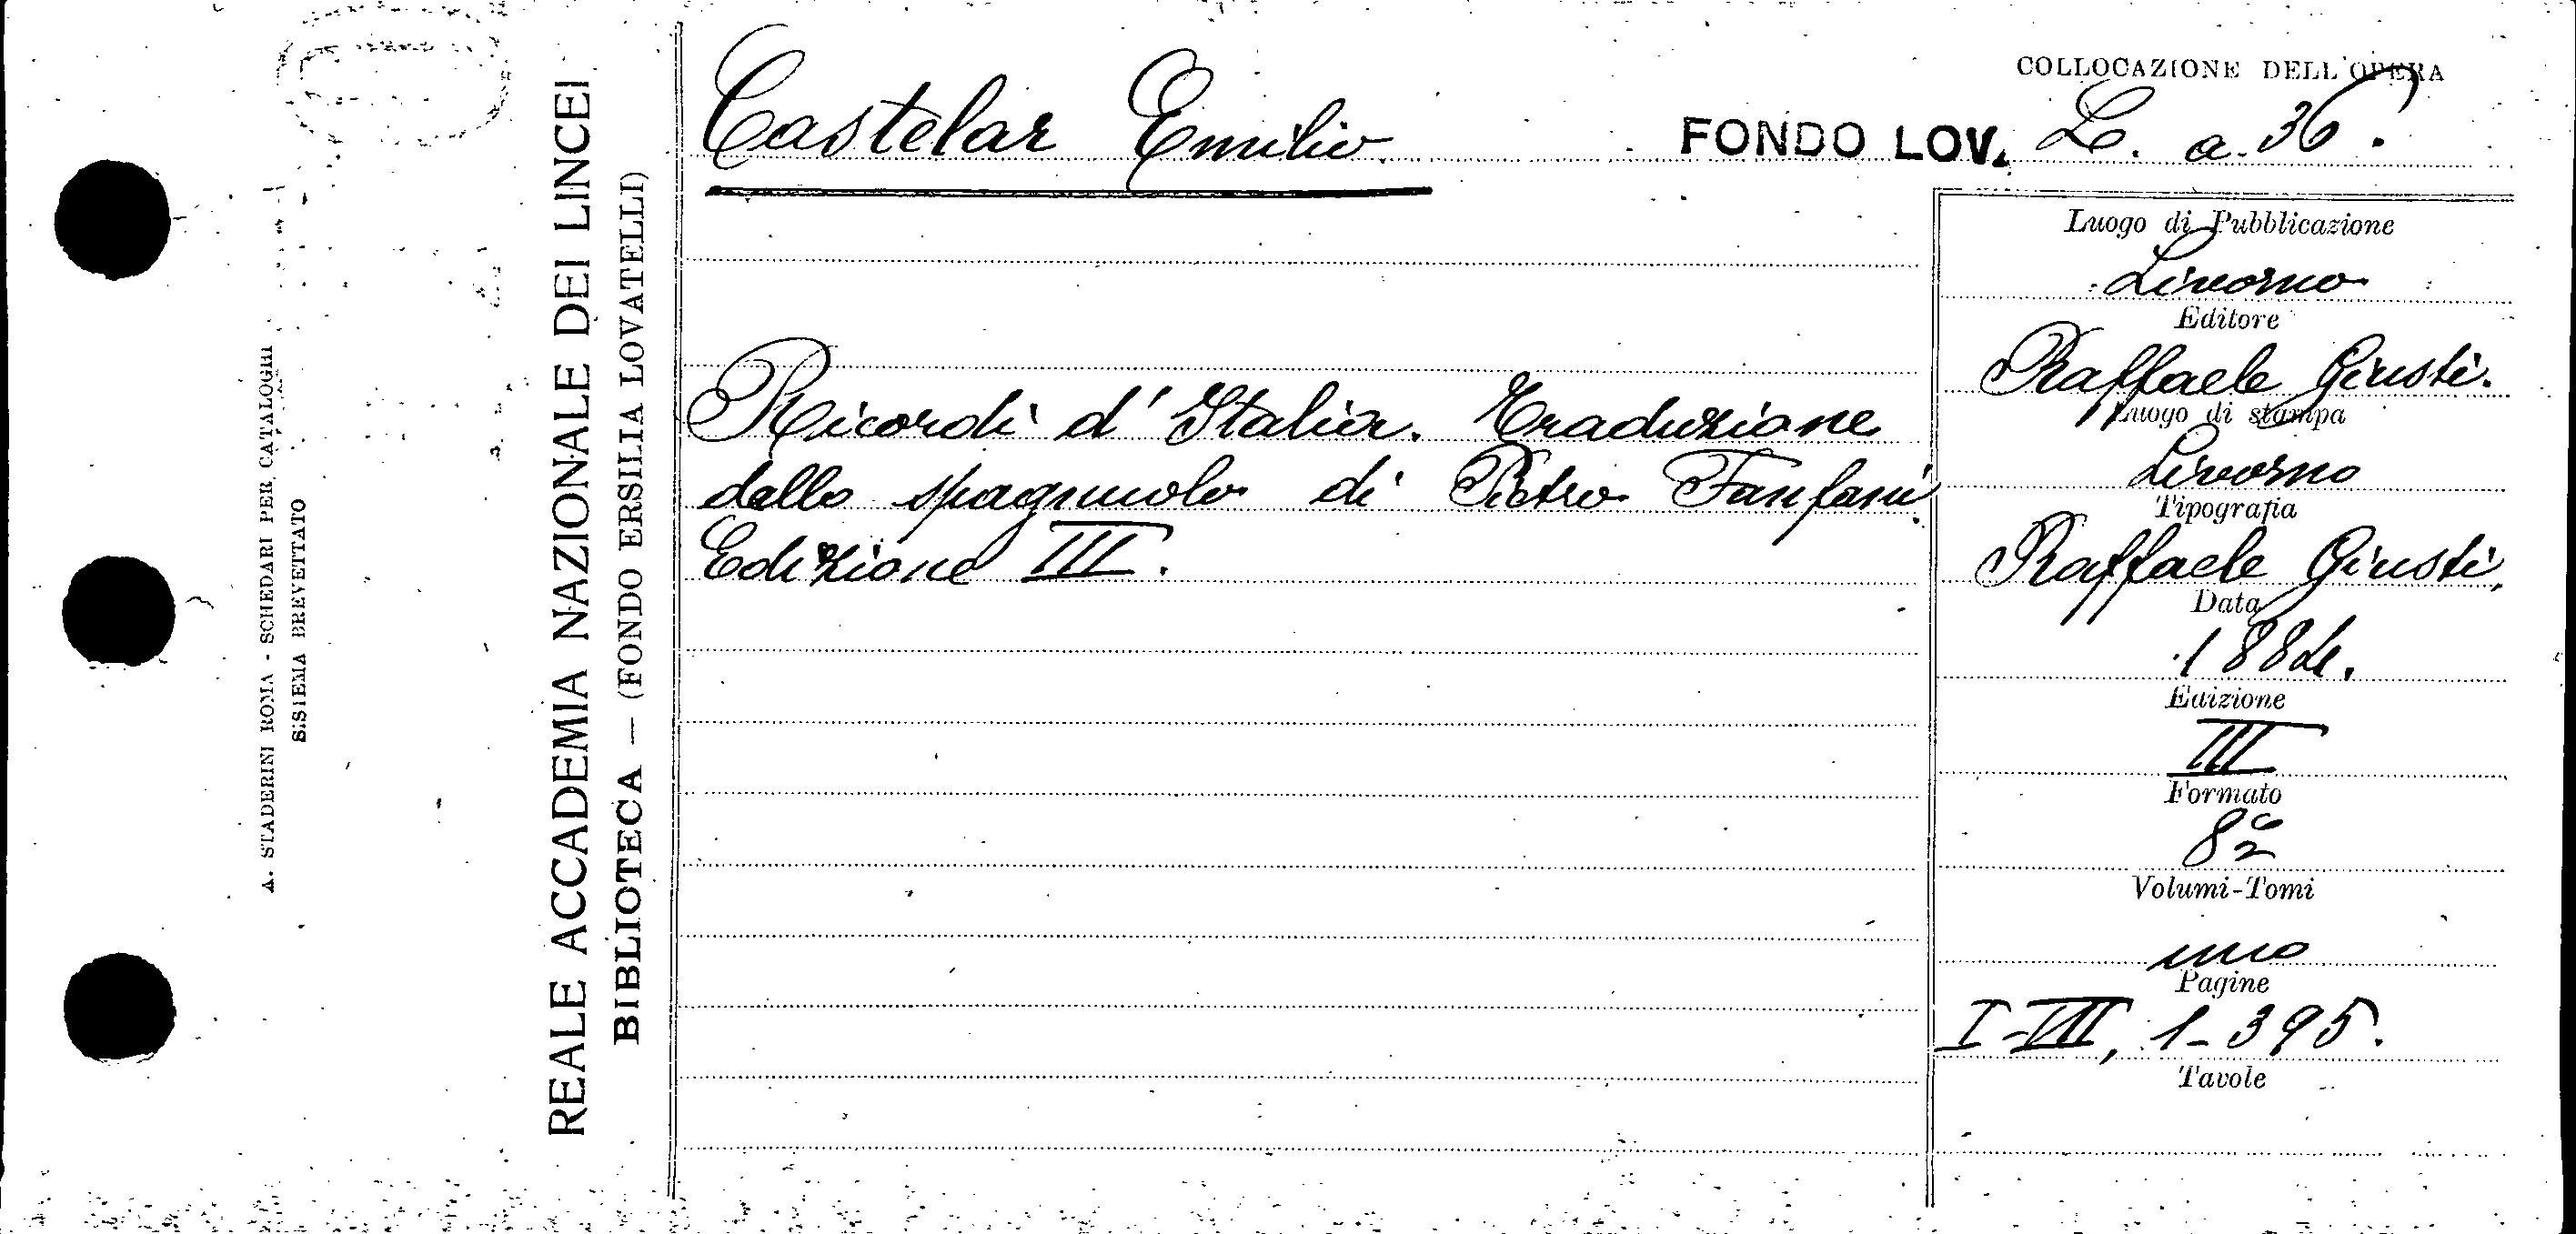 A. STADERINI ROMA - SCHEDARI PER CATALOGHI
SISTEMA BREVETTATO
REALE ACCADEMIA NAZIONALE DEI LINCEI
BIBLIOTECA — (FONDO ERSILIA LOVATELLI)
Castelar Emilio
COLLOCAZIONE DELL'OPERA
FONDO LOV. L. a. 36.
Ricordi d'Italia. Traduzione
dallo spagnuolo di Pietro Fanfani.
Edizione III.
Luogo di Pubblicazione
Livorno
Editore
Raffaele Giusti.
Luogo di stampa
Livorno
Tipografia
Raffaele Giusti.
Data
1884.
Edizione
III
Formato
8º
Volumi-Tomi
uno
Pagine
I-VII, 1-395.
Tavole